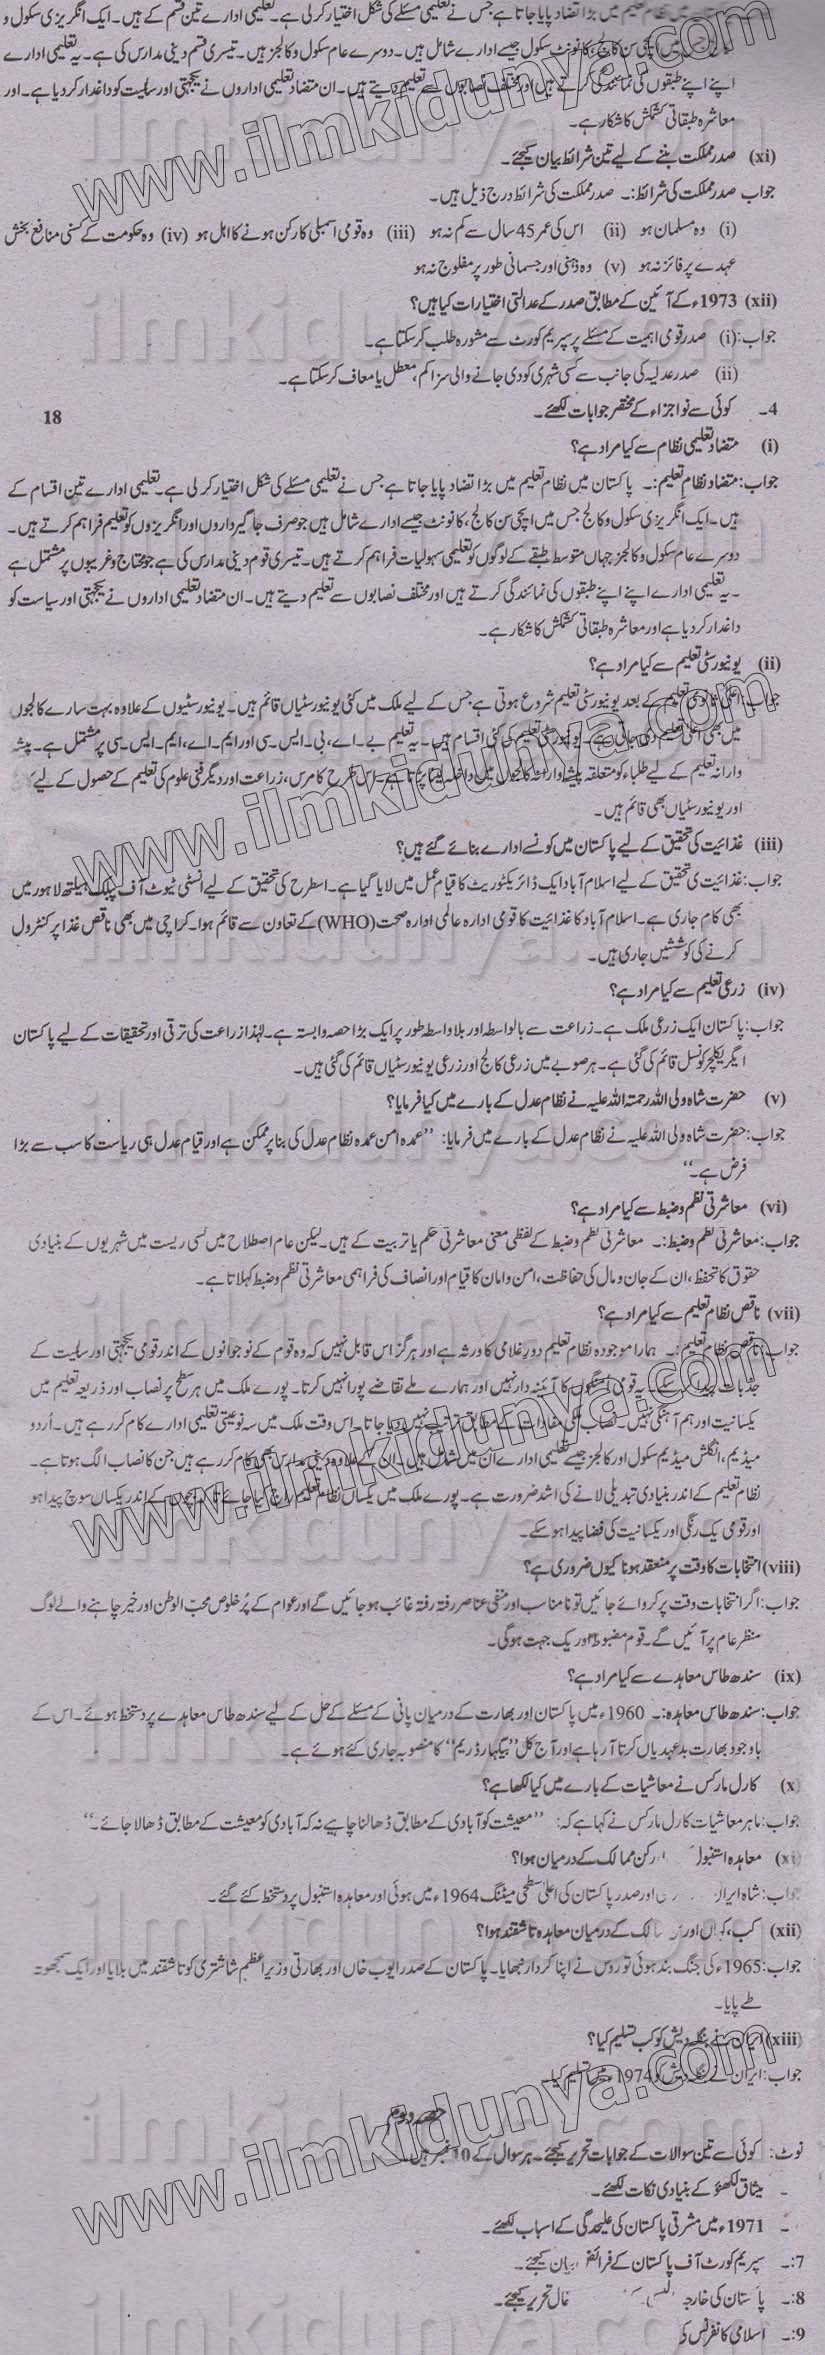 پاکستان میں نظام تعلیم میں بڑا تضاد پایا جاتا ہے جس نے تعلیمی مسئلے کی شکل اختیار کر لی ہے۔ تعلیمی ادارے تین قسم کے ہیں۔ ایک انگریزی سکول و
کالج جس میں ایچی سن کالج کانونٹ سکول جیسے ادارے شامل ہیں۔ دوسرے عام سکول و کالجز ہیں۔ تیسری قسم دینی مدارس کی ہے۔ یہ تعلیمی ادارے
اپنے اپنے طبقوں کی نمائندگی کرتے ہیں اور مختلف نصابوں سے تعلیم دیتے ہیں۔ ان متضاد تعلیمی اداروں نے یکجہتی اور سالمیت کو داغدار کر دیا ہے۔ اور
معاشرہ طبقاتی کشمکش کا شکار ہے۔
(xi) صدر مملکت بننے کے لیے تین شرائط بیان کیجئے۔
جواب صدر مملکت کی شرائط:۔ صدر مملکت کی شرائط درج ذیل ہیں۔
(i) وہ مسلمان ہو (ii) اس کی عمر 45 سال سے کم نہ ہو (iii) وہ قومی اسمبلی کا رکن ہونے کا اہل ہو (iv) وہ حکومت کے کسی منافع بخش
عہدے پر فائز نہ ہو (v) وہ ذہنی اور جسمانی طور پر مفلوج نہ ہو
(xii) 1973ء کے آئین کے مطابق صدر کے عدالتی اختیارات کیا ہیں؟
جواب: (i) صدر قومی اہمیت کے مسئلے پر سپریم کورٹ سے مشورہ طلب کر سکتا ہے۔
(ii) صدر عدلیہ کی جانب سے کسی شہری کو دی جانے والی سزا کم، معطل یا معاف کر سکتا ہے۔
4۔ کوئی سے نو اجزاء کے مختصر جوابات لکھئے۔ 18
(i) متضاد تعلیمی نظام سے کیا مراد ہے؟
جواب: متضاد نظام تعلیم:۔ پاکستان میں نظام تعلیم میں بڑا تضاد پایا جاتا ہے جس نے تعلیمی مسئلے کی شکل اختیار کر لی ہے۔ تعلیمی ادارے تین اقسام کے
ہیں۔ ایک انگریزی سکول و کالج جس میں ایچی سن کالج، کانونٹ جیسے ادارے شامل ہیں جو صرف جاگیرداروں اور انگریزوں کو تعلیم فراہم کرتے ہیں۔
دوسرے عام سکول و کالجز جہاں متوسط طبقے کے لوگوں کو تعلیمی سہولیات فراہم کرتے ہیں۔ تیسری قوم دینی مدارس کی ہے جو محتاج و غریبوں پر مشتمل ہے
۔ یہ تعلیمی ادارے اپنے اپنے طبقوں کی نمائندگی کرتے ہیں اور مختلف نصابوں سے تعلیم دیتے ہیں۔ ان متضاد تعلیمی اداروں نے یکجہتی اور سیاست کو
داغدار کر دیا ہے اور معاشرہ طبقاتی کشمکش کا شکار ہے۔
(ii) یونیورسٹی تعلیم سے کیا مراد ہے؟
جواب: اعلیٰ ثانوی تعلیم کے بعد یونیورسٹی تعلیم شروع ہوتی ہے جس کے لیے ملک میں کئی یونیورسٹیاں قائم ہیں۔ یونیورسٹیوں کے علاوہ بہت سارے کالجوں
میں بھی اعلیٰ تعلیم دی جاتی ہے۔ یونیورسٹی تعلیم کی کئی اقسام ہیں۔ یہ تعلیم بی۔اے، بی۔ایس۔سی اور ایم۔اے، ایم۔ایس۔سی پر مشتمل ہے۔ پیشہ
وارانہ تعلیم کے لیے طلباء کو متعلقہ پیشہ وارانہ کالجوں میں داخلہ لینا پڑتا ہے۔ اس طرح کامرس، زراعت اور دیگر فنی علوم کی تعلیم کے حصول کے لیے
اور یونیورسٹیاں بھی قائم ہیں۔
(iii) غذائیت کی تحقیق کے لیے پاکستان میں کونسے ادارے بنائے گئے ہیں؟
جواب: غذائیت ی تحقیق کے لیے اسلام آباد ایک ڈائریکٹوریٹ کا قیام عمل میں لایا گیا ہے۔ اسطرح کی تحقیق کے لیے انسٹی ٹیوٹ آف پبلک ہیلتھ لاہور میں
بھی کام جاری ہے۔ اسلام آباد کا غذائیت کا قومی ادارہ عالمی ادارہ صحت (WHO) کے تعاون سے قائم ہوا۔ کراچی میں بھی ناقص غذا پر کنٹرول
کرنے کی کوششیں جاری ہیں۔
(iv) زرعی تعلیم سے کیا مراد ہے؟
جواب: پاکستان ایک زرعی ملک ہے۔ زراعت سے بالواسطہ اور بلا واسطہ طور پر ایک بڑا حصہ وابستہ ہے۔ لہٰذا زراعت کی ترقی اور تحقیقات کے لیے پاکستان
ایگریکلچر کونسل قائم کی گئی ہے۔ ہر صوبے میں زرعی کالج اور زرعی یونیورسٹیاں قائم کی گئی ہیں۔
(v) حضرت شاہ ولی اللہ رحمتہ اللہ علیہ نے نظام عدل کے بارے میں کیا فرمایا؟
جواب: حضرت شاہ ولی اللہ علیہ نے نظام عدل کے بارے میں فرمایا: ''عمدہ امن عمدہ نظام عدل کی بنا پر ممکن ہے اور قیام عدل ہی ریاست کا سب سے بڑا
فرض ہے۔''
(vi) معاشرتی نظم و ضبط سے کیا مراد ہے؟
جواب: معاشرتی نظم و ضبط:۔ معاشرتی نظم و ضبط کے لفظی معنی معاشرتی حکم یا تربیت کے ہیں۔ لیکن عام اصطلاح میں کسی ریست میں شہریوں کے بنیادی
حقوق کا تحفظ، ان کے جان و مال کی حفاظت، امن و امان کا قیام اور انصاف کی فراہمی معاشرتی نظم و ضبط کہلاتا ہے۔
(vii) ناقص نظام تعلیم سے کیا مراد ہے؟
جواب: ناقص نظام تعلیم:۔ ہمارا موجودہ نظام تعلیم دور غلامی کا ورثہ ہے اور ہرگز اس قابل نہیں کہ وہ قوم کے نوجوانوں کے اندر قومی یکجہتی اور سالمیت کے
جذبات پیدا کر سکے۔ یہ قومی امنگوں کا آئینہ دار نہیں اور ہمارے ملے تقاضے پورا نہیں کرتا۔ پورے ملک میں ہر سطح پر نصاب اور ذریعہ تعلیم میں
یکسانیت اور ہم آہنگی نہیں۔ نصاب ملی مفادات کے مطابق ترتیب نہیں دیا جاتا۔ اس وقت ملک میں سہ نوعیتی تعلیمی ادارے کام کر رہے ہیں۔ اُردو
میڈیم، انگلش میڈیم سکول اور کالجز جیسے تعلیمی ادارے ان میں شامل ہیں۔ ان کے علاوہ دینی مدارس بھی کام کر رہے ہیں جن کا نصاب الگ ہوتا ہے۔
نظام تعلیم کے اندر بنیادی تبدیلی لانے کی اشد ضرورت ہے۔ پورے ملک میں یکساں نظام تعلیم رائج کیا جائے تا کہ بچوں کے اندر یکساں سوچ پیدا ہو
اور قومی یک رنگی اور یکسانیت کی فضا پیدا ہو سکے۔
(viii) انتخابات کا وقت پر منعقد ہونا کیوں ضروری ہے؟
جواب: اگر انتخابات وقت پر کروائے جائیں تو نامناسب اور منفی عناصر رفتہ رفتہ غائب ہو جائیں گے اور عوام کے پُر خلوص محب الوطن اور خیر چاہنے والے لوگ
منظر عام پر آئیں گے۔ قوم مضبوط اور یک جہت ہوگی۔
(ix) سندھ طاس معاہدے سے کیا مراد ہے؟
جواب: سندھ طاس معاہدہ:۔ 1960ء میں پاکستان اور بھارت کے درمیان پانی کے مسئلے کے حل کے لیے سندھ طاس معاہدے پر دستخط ہوئے۔ اس کے
باوجود بھارت بد عہدیاں کرتا آ رہا ہے اور آج کل ''بگلہار ڈریم'' کا منصوبہ جاری کئے ہوئے ہے۔
(x) کارل مارکس نے معاشیات کے بارے میں کیا لکھا ہے؟
جواب: ماہر معاشیات کارل مارکس نے کہا ہے کہ: ''معیشت کو آبادی کے مطابق ڈھالنا چاہیے نہ کہ آبادی کو معیشت کے مطابق ڈھالا جائے۔''
(xi) معاہدہ استنبول رکن ممالک کے درمیان ہوا؟
جواب: شاہ ایران اور صدر پاکستان کی اعلیٰ سطحی میٹنگ 1964ء میں ہوئی اور معاہدہ استنبول پر دستخط کئے گئے۔
(xii) کب، کہاں اور کن ممالک کے درمیان معاہدہ تاشقند ہوا؟
جواب: 1965ء کی جنگ بند ہوئی تو روس نے اپنا کردار نبھایا۔ پاکستان کے صدر ایوب خاں اور بھارتی وزیر اعظم شاشتری کو تاشقند میں بلایا اور ایک سمجھوتہ
طے پایا۔
(xiii) ایران نے بنگلہ دیش کو کب تسلیم کیا؟
جواب: ایران نے بنگلہ دیش کو 1974ء میں تسلیم کیا۔
حصہ دوم
نوٹ: کوئی سے تین سوالات کے جوابات تحریر کیجئے۔ ہر سوال کے 10 نمبر ہیں۔
۔ میثاق لکھنؤ کے بنیادی نکات لکھئے۔
۔ 1971ء میں مشرقی پاکستان کی علیحدگی کے اسباب لکھئے۔
7:۔ سپریم کورٹ آف پاکستان کے فرائض بیان کیجئے۔
8:۔ پاکستان کی خارجہ تحریر کیجئے۔
9:۔ اسلامی کانفرنس کی
www.ilmkidunya.com
www.ilmkidunya.com
www.ilmkidunya.com
www.ilmkidunya.com